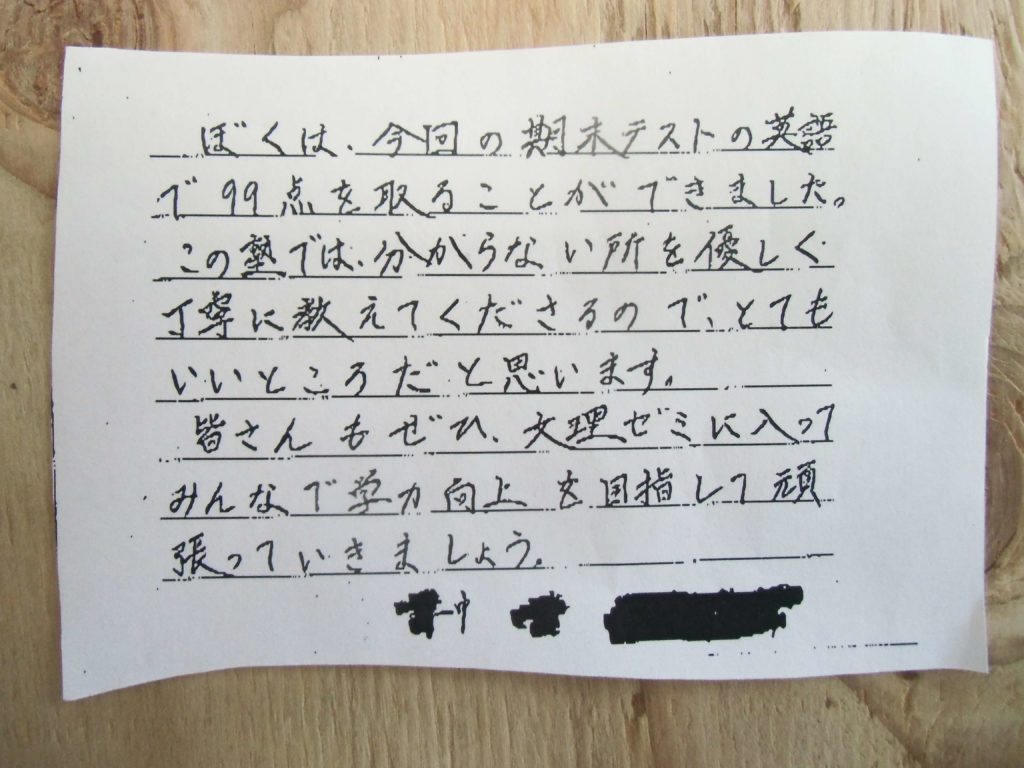 ぼくは、今回の期末テストの英語
で99点を取ることができました。
この塾では、分からない所を優しく
丁寧に教えてくださるので、とても
いいところだと思います。
皆さんもぜひ、文理ゼミに入って
みんなで学力向上を目指して頑
張っていきましょう。
一中